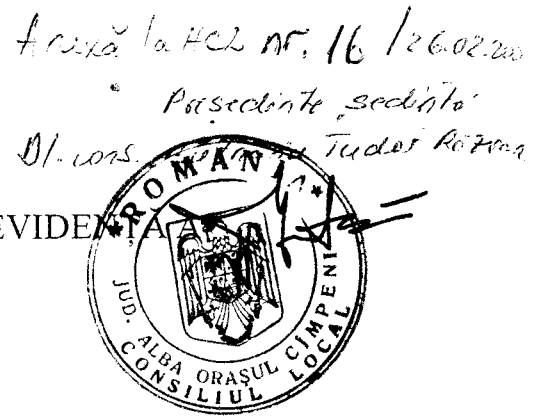 Anexă la HCL nr. 16 / 26.02.200
Președinte ședință
Dl. cons. Tudor Răzvan
EVIDENȚA A
* ROMÂNIA *
JUD. ALBA ORAȘUL CÎMPENI
CONSILIUL LOCAL